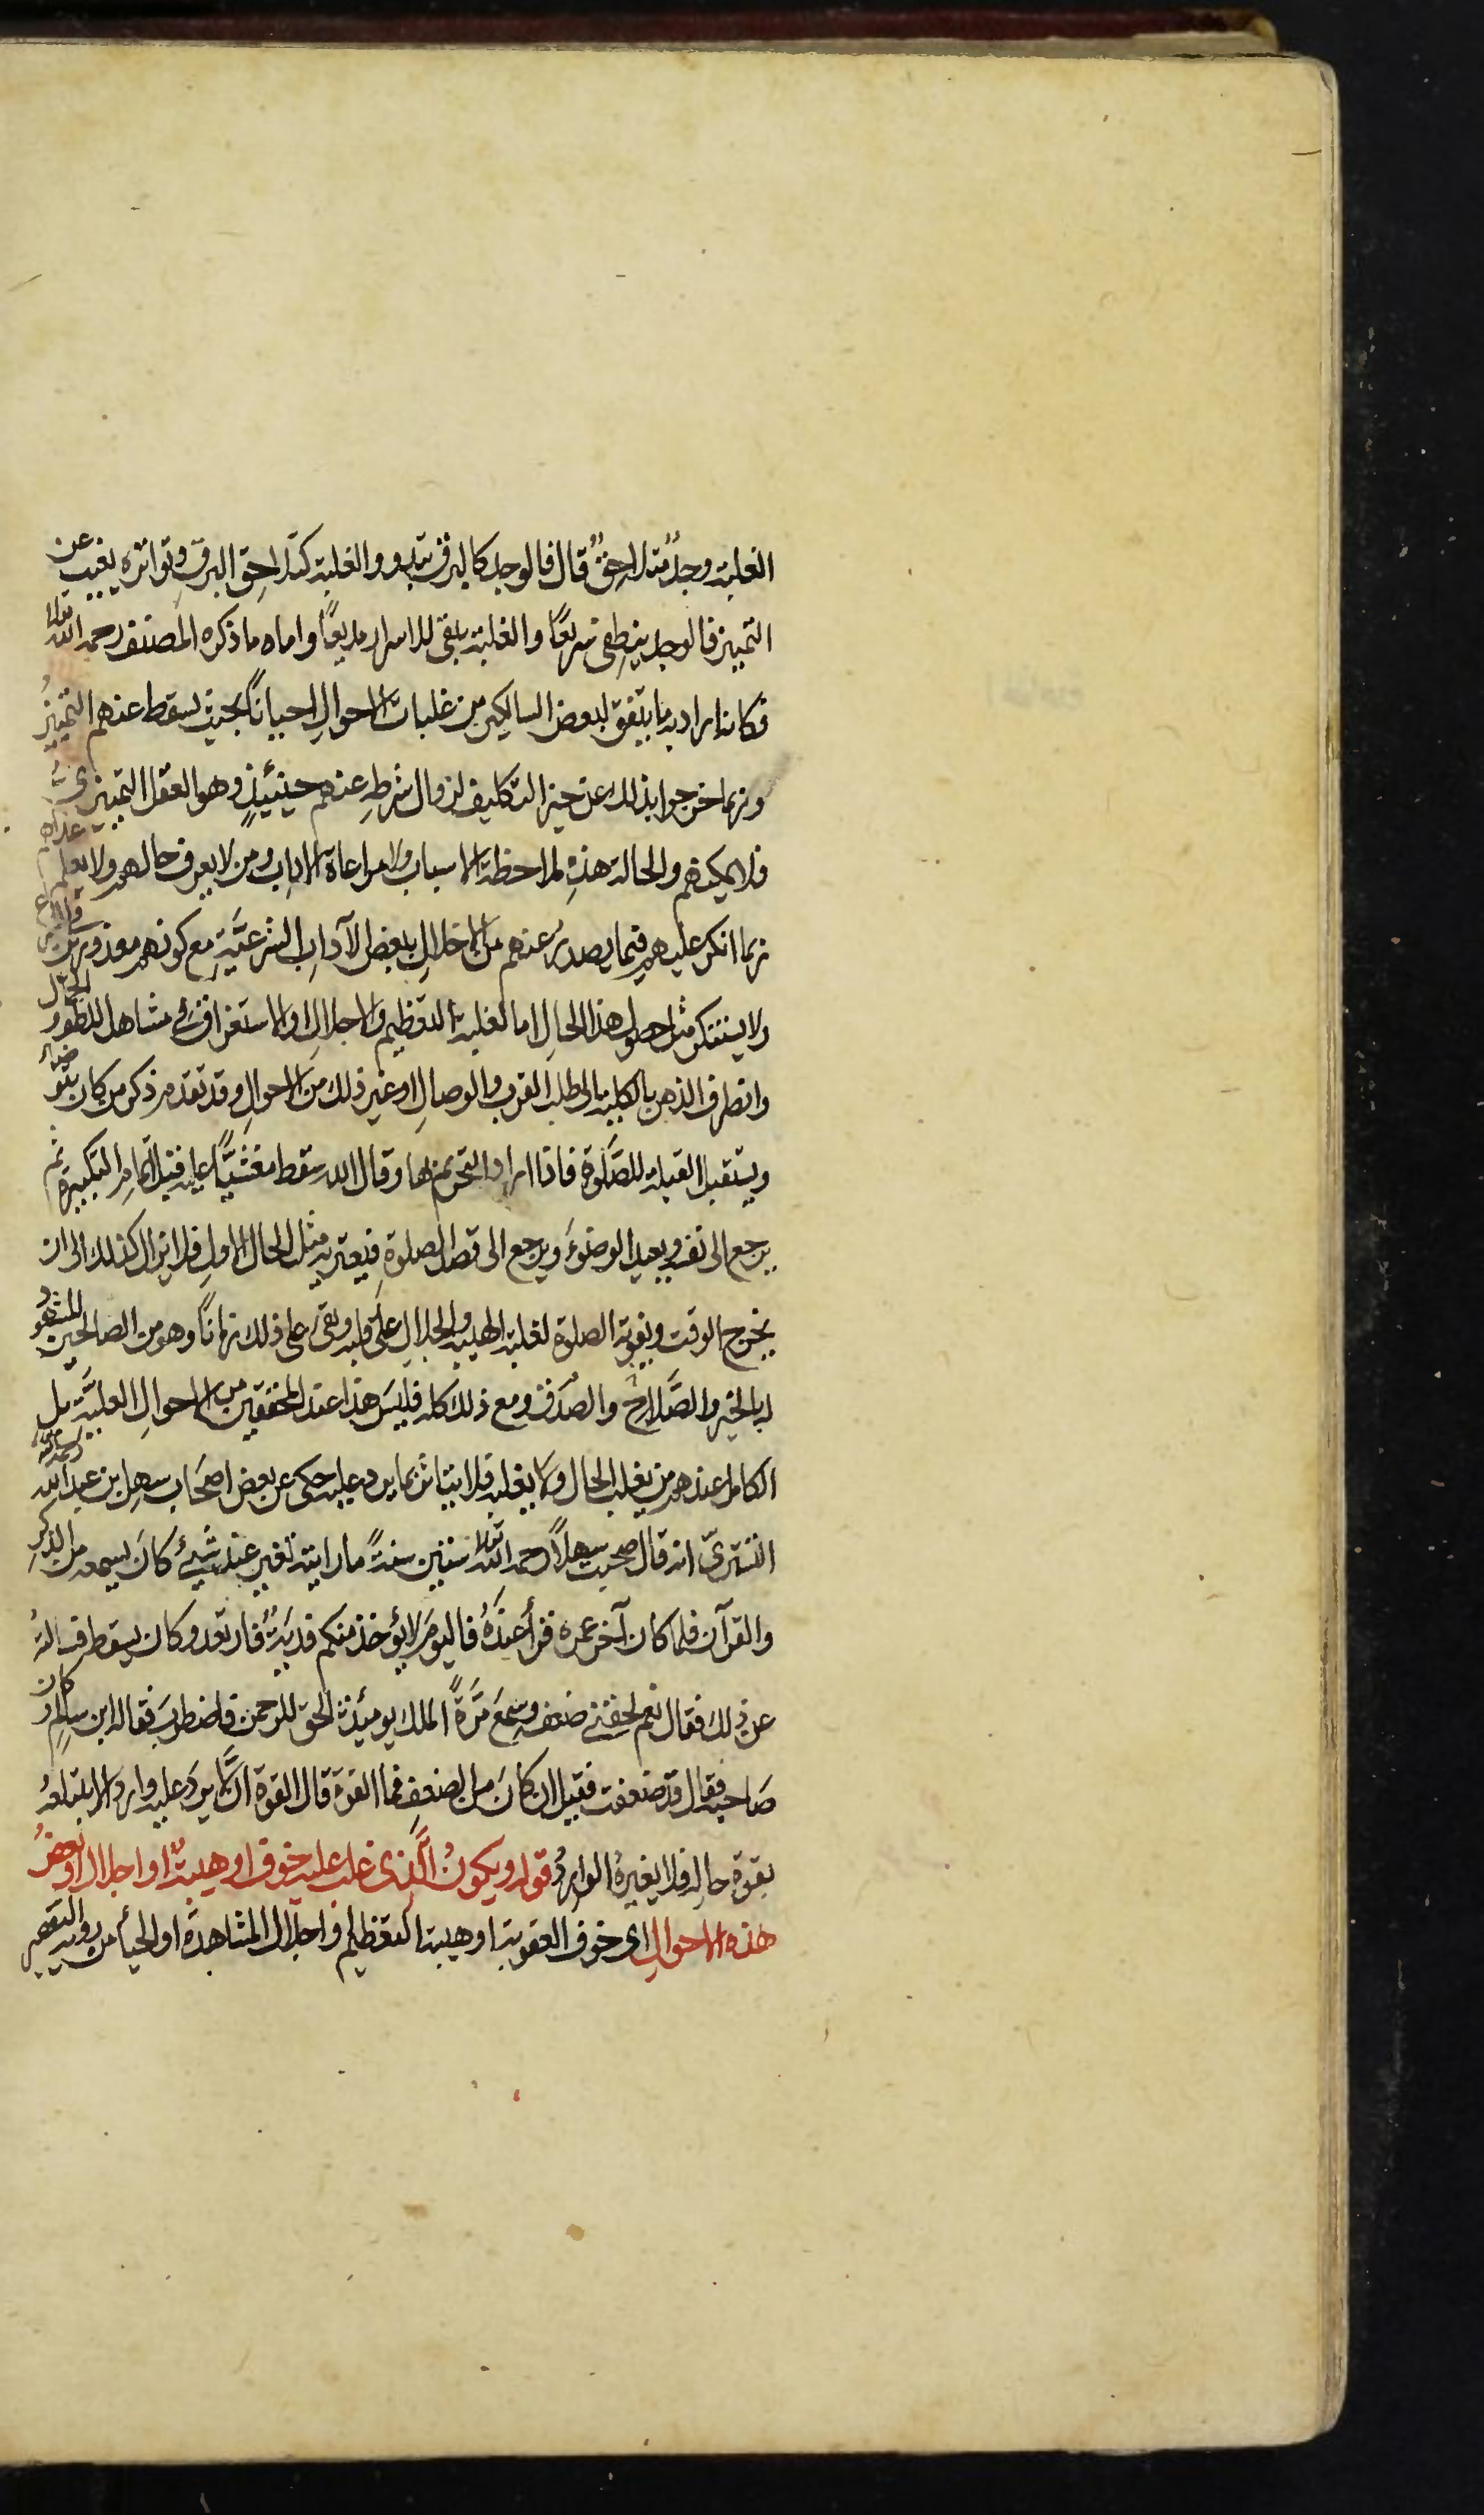 الغلبة وجدٌ متلاحقٌ قال فالوجد كالبرق يبدو والغلبة كتلاحق البرق وتواتره يغيب عن
التمييز فالوجد ينطفى سريعًا والغلبة يبقى للاسرار مديعًا واما ما ذكره المصنف رحمه الله تعالى
فكانه اراد به ما يتفق لبعض السالكين من غلبات الاحوالِ احيانًا بحيث يسقط عنهم التمييزُ
وربما خرجوا بذلك عن حيز التكليف لزوال شرطِهِ عنهم حينئيذٍ وهو العقل التمييزى
فلا يمكنهم والحالة هذهِ ملاحظة الاسباب ولا مراعاة الاداب ومن لا يعرف حالهم ولا يعلم عذرهم
ربما انكر عليهم فيما يصدرُ عنهم من الاخلالِ ببعض الآدابِ الشرعيَّةِ مع كونهم معذورين
ولا يستنكر مثل حصول هذا الحالِ اما لغلبة التعظيم والاجلالِ او الاستغراق فى مشاهد
وانصراف الذهن بالكلية الى طلب القرب والوصالِ او غير ذلك من الاحوالِ وقد تقدم ذكر من كان يتوضأ
ويستقبل القبلة للصَّلوة فاذا اراد التحريم بها وقال الله سقط مغشيًّا عليه قبل اتمام التكبيرة ثم
يرجع الى نفسه ويعيد الوضوءَ ويرجع الى قصد الصلوةِ فيعتريه مثل الحال الاولِ فلا يزال كذلك الى ان
يخرج الوقت ويفوته الصلوة لغلبة الهيبة والجلالِ على قلبه وبقى على ذلك زمانًا وهو من الصالحين المشهود
له بالخير والصَّلاح والصدق ومع ذلك كله فليسَ هذا عند المحققين من الاحوالِ العليَّة بل
الكامل عندهم من يغلب الحال ولا يغلبه فلا يتاثر بما يرد عليه حكى عن بعض اصحَاب سهل بن عبد الله
التسترىّ انه قال صحبت سهلاً رحمه الله تعالى ستين سنةً ما رايته تغير عند شيئٍ كانَ يسمعه من الذكرِ
والقرآن فلما كان آخر عمره قرأ عندَهُ فاليومَ لا يؤخذ منكم فديَةٌ فارتعد وكان يسقط فسالتهُ
عن ذلك فقال نعم لحقنى ضعف وسمعَ مَرَّةً الملك يومئذ الحق للرحمن فاضطربَ فقاله ابن سالم وكان
صَاحبه فقال قد ضعفت فقيل ان كانَ من الضعفِ فما القوة قال القوة ان لا يرد عليه وارد الا يبتلعهُ
بقوة حالهِ فلا يغيرهُ الواردُ قوله ويكونُ الَّذى غلب عليه خوف او هيبةٌ او اجلال او بعضُ
هذه الاحوالِ اى خوف العقوبة او هيبة التعظيم او اجلال المشاهدة او الحيأ من روية التقصير